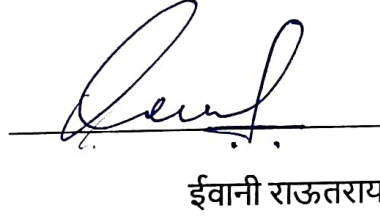 ईवानी राऊतराय